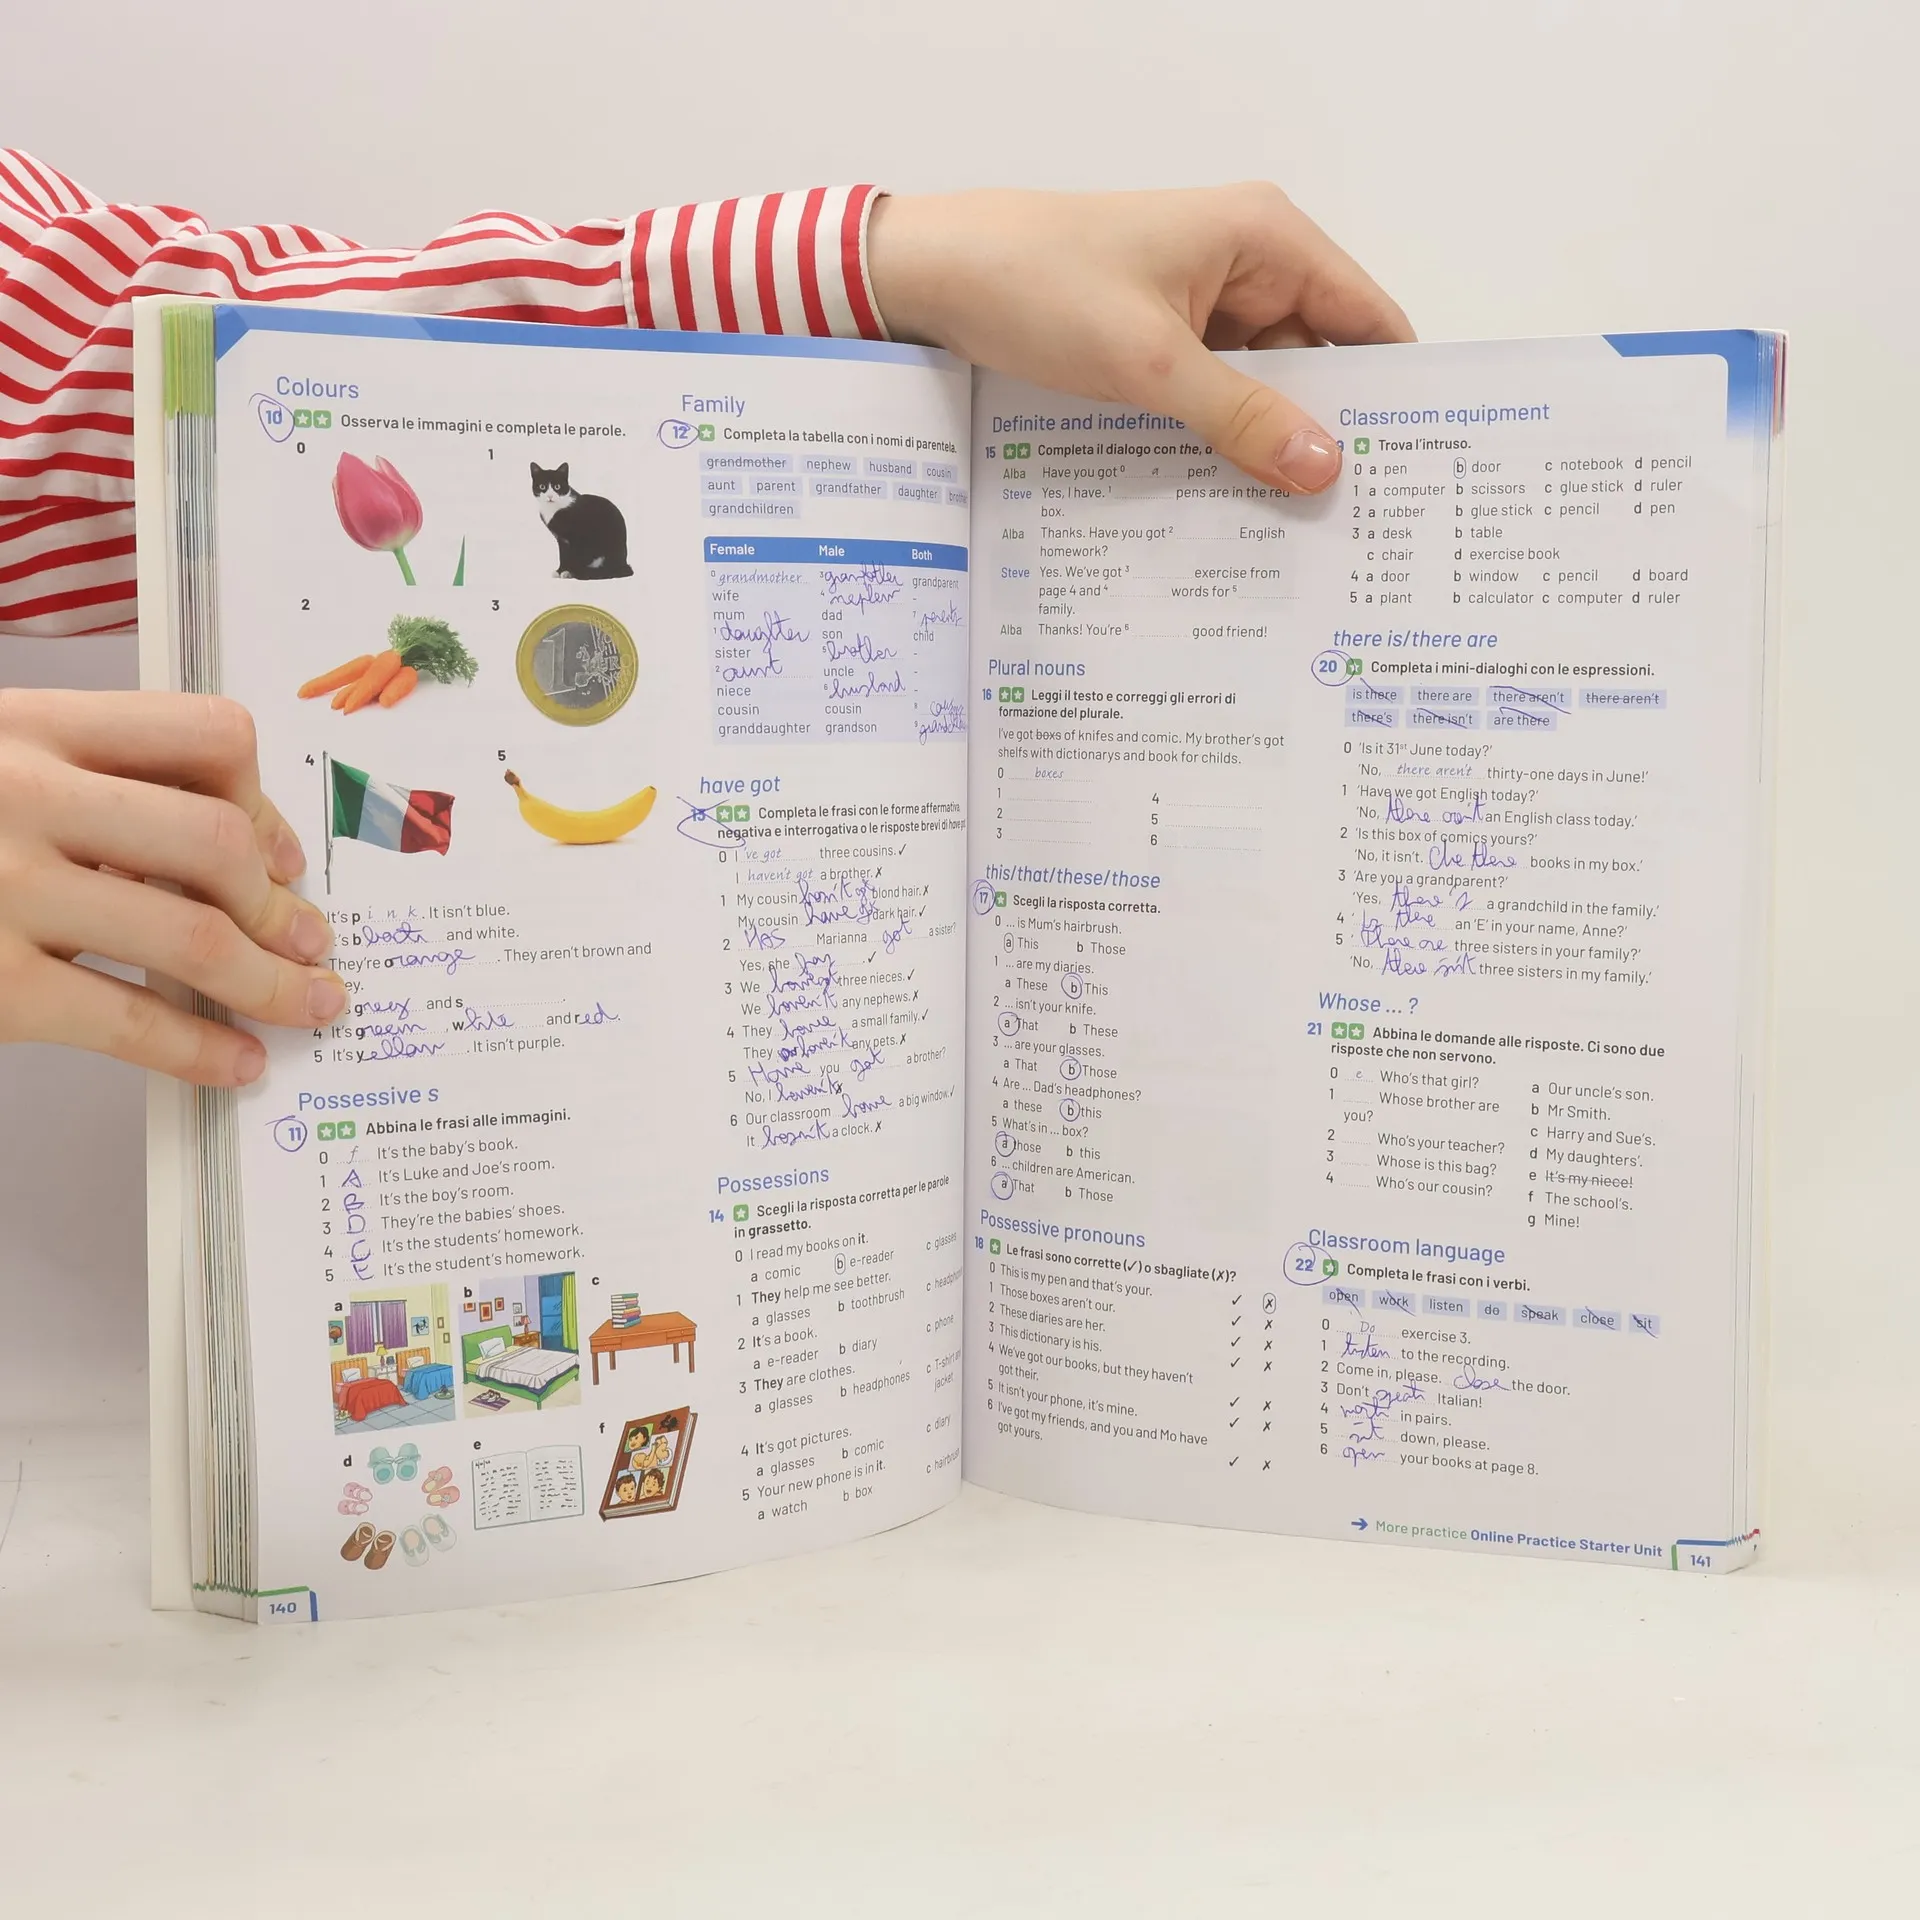 Colours
10 Osserva le immagini e completa le parole.
0
1
2
3
4
5
It's p i n k . It isn't blue.
's b and white.
They're orange . They aren't brown and
ey.
and s
4 It's green , white and red.
5 It's yellow . It isn't purple.
Possessive s
11 Abbina le frasi alle immagini.
0 f It's the baby's book.
1 A It's Luke and Joe's room.
2 B It's the boy's room.
3 D They're the babies' shoes.
4 C It's the students' homework.
5 E It's the student's homework.
a
b
c
d
e
f
140
Family
12 Completa la tabella con i nomi di parentela.
grandmother nephew husband cousin
aunt parent grandfather daughter
grandchildren
Female Male Both
0 grandmother 3 grandparent
wife 4 nephew -
mum dad 7 parents
1 daughter son child
sister 5 brother -
2 aunt uncle -
niece 6 husband -
cousin cousin 8
granddaughter grandson 9
have got
13 Completa le frasi con le forme affermativa,
negativa e interrogativa o le risposte brevi di have got.
0 I 've got three cousins. ✓
I haven't got a brother. ✗
1 My cousin blond hair. ✗
My cousin have got dark hair. ✓
2 HAS Marianna got a sister?
Yes, she has . ✓
3 We three nieces. ✓
We haven't any nephews. ✗
4 They have a small family. ✓
They haven't any pets. ✗
5 Have you got a brother?
No, I haven't ✗
6 Our classroom have a big window. ✓
It hasn't a clock. ✗
Possessions
14 Scegli la risposta corretta per le parole
in grassetto.
0 I read my books on it.
a comic b e-reader c glasses
1 They help me see better.
a glasses b toothbrush
2 It's a book.
a e-reader b diary c phone
3 They are clothes.
a glasses b headphones c T-shirt
jacket
4 It's got pictures.
a glasses b comic c diary
5 Your new phone is in it.
a watch b box
Definite and indefinite
15 Completa il dialogo con the, a
Alba Have you got 0 a pen?
Steve Yes, I have. 1 pens are in the red
box.
Alba Thanks. Have you got 2 English
homework?
Steve Yes. We've got 3 exercise from
page 4 and 4 words for 5
family.
Alba Thanks! You're 6 good friend!
Plural nouns
16 Leggi il testo e correggi gli errori di
formazione del plurale.
I've got boxs of knifes and comic. My brother's got
shelfs with dictionarys and book for childs.
0 boxes
1 4
2 5
3 6
this/that/these/those
17 Scegli la risposta corretta.
0 ... is Mum's hairbrush.
a This b Those
1 ... are my diaries.
a These b This
2 ... isn't your knife.
a That b These
3 ... are your glasses.
a That b Those
4 Are ... Dad's headphones?
a these b this
5 What's in ... box?
a those b this
6 ... children are American.
a That b Those
Possessive pronouns
18 Le frasi sono corrette (✓) o sbagliate (✗)?
0 This is my pen and that's your. ✓ ✗
1 Those boxes aren't our. ✓ ✗
2 These diaries are her. ✓ ✗
3 This dictionary is his. ✓ ✗
4 We've got our books, but they haven't
got their. ✓ ✗
5 It isn't your phone, it's mine. ✓ ✗
6 I've got my friends, and you and Mo have
got yours. ✓ ✗
Classroom equipment
9 Trova l'intruso.
0 a pen b door c notebook d pencil
1 a computer b scissors c glue stick d ruler
2 a rubber b glue stick c pencil d pen
3 a desk b table
c chair d exercise book
4 a door b window c pencil d board
5 a plant b calculator c computer d ruler
there is/there are
20 Completa i mini-dialoghi con le espressioni.
is there there are there aren't there aren't
there's there isn't are there
0 'Is it 31st June today?'
'No, there aren't thirty-one days in June!'
1 'Have we got English today?'
'No, there aren't an English class today.'
2 'Is this box of comics yours?'
'No, it isn't. there books in my box.'
3 'Are you a grandparent?'
'Yes, there's a grandchild in the family.'
4 ' Is there an 'E' in your name, Anne?'
5 ' There are three sisters in your family?'
'No, there isn't three sisters in my family.'
Whose ... ?
21 Abbina le domande alle risposte. Ci sono due
risposte che non servono.
0 e Who's that girl?
1 Whose brother are
you?
2 Who's your teacher?
3 Whose is this bag?
4 Who's our cousin?
a Our uncle's son.
b Mr Smith.
c Harry and Sue's.
d My daughters'.
e It's my niece!
f The school's.
g Mine!
Classroom language
22 Completa le frasi con i verbi.
open work listen do speak close sit
0 Do exercise 3.
1 listen to the recording.
2 Come in, please. close the door.
3 Don't speak Italian!
4 work in pairs.
5 sit down, please.
6 open your books at page 8.
→ More practice Online Practice Starter Unit
141